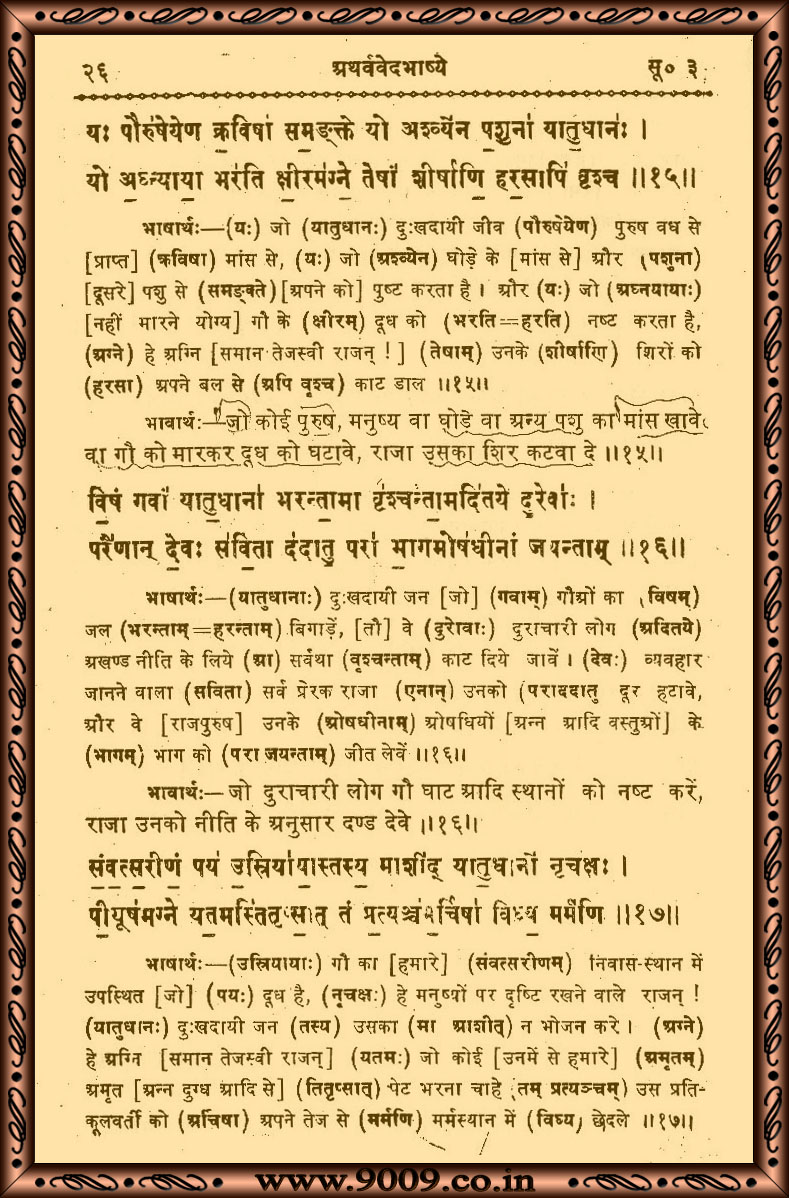 २६ अथर्ववेदभाष्ये सू० ३
यः पौरु॑षेयेण क्र॒विषा॑ सम॒ङ्क्ते यो अश्व्ये॑न प॒शुना॑ यातु॒धानः॑ ।
यो अ॒घ्न्याया॒ भर॑ति क्षी॒रम॑ग्ने॒ तेषां॑ शी॒र्षाणि॒ हर॒सापि॑ वृश्च ॥१५॥
भाषार्थः—(यः) जो (यातुधानः) दुःखदायी जीव (पौरुषेयेण) पुरुष वध से
[प्राप्त] (क्रविषा) मांस से, (यः) जो (अश्व्येन) घोड़े के [मांस से] और (पशुना)
[दूसरे] पशु से (समङ्क्ते) [अपने को] पुष्ट करता है । और (यः) जो (अघ्नयायाः)
[नहीं मारने योग्य] गौ के (क्षीरम्) दूध को (भरति=हरति) नष्ट करता है,
(अग्ने) हे अग्नि [समान तेजस्वी राजन् !] (तेषाम्) उनके (शीर्षाणि) शिरों को
(हरसा) अपने बल से (अपि वृश्च) काट डाल ॥१५॥
भावार्थः—जो कोई पुरुष, मनुष्य वा घोड़े वा अन्य पशु का मांस खावे
वा गौ को मारकर दूध को घटावे, राजा उसका शिर कटवा दे ॥१५॥
वि॒षं गवां॑ यातु॒धाना॑ भरन्ता॒मा वृ॑श्चन्ता॒मदि॑तये दु॒रेवाः॑ ।
परै॑णान् दे॒वः स॑वि॒ता द॑दातु॒ परा॑ भा॒गमोष॑धीनां जयन्ताम् ॥१६॥
भाषार्थः—(यातुधानाः) दुःखदायी जन [जो] (गवाम्) गौओं का (विषम्)
जल (भरन्ताम्=हरन्ताम्) बिगाड़ें, [तौ] वे (दुरेवाः) दुराचारी लोग (अदितये)
अखण्ड नीति के लिये (आ) सर्वथा (वृश्चन्ताम्) काट दिये जावें । (देवः) व्यवहार
जानने वाला (सविता) सर्व प्रेरक राजा (एनान्) उनको (पराददातु दूर हटावे,
और वे [राजपुरुष] उनके (ओषधीनाम्) ओषधियों [अन्न आदि वस्तुओं] के
(भागम्) भाग को (परा जयन्ताम्) जीत लेवें ॥१६॥
भावार्थः—जो दुराचारी लोग गौ घाट आदि स्थानों को नष्ट करें,
राजा उनको नीति के अनुसार दण्ड देवे ॥१६॥
सं॒व॒त्स॒रीणं॒ पय॑ उ॒स्रिया॑या॒स्तस्य॒ माशी॑द् यातु॒धानो॑ नृचक्षः ।
पी॒यूष॑मग्ने यत॒मस्तितृ॑प्सा॒त् तं प्र॒त्यञ्च॑म॒र्चिषा॑ विध्य॒ मर्म॑णि ॥१७॥
भाषार्थः—(उस्रियायाः) गौ का [हमारे] (संवत्सरीणम्) निवास-स्थान में
उपस्थित [जो] (पयः) दूध है, (नृचक्षः) हे मनुष्यों पर दृष्टि रखने वाले राजन् !
(यातुधानः) दुःखदायी जन (तस्य) उसका (मा आशीत्) न भोजन करे । (अग्ने)
हे अग्नि [समान तेजस्वी राजन्] (यतमः) जो कोई [उनमें से हमारे] (अमृतम्)
अमृत [अन्न दुग्ध आदि से] (तितृप्सात्) पेट भरना चाहे (तम् प्रत्यञ्चम्) उस प्रति-
कूलवर्ती को (अर्चिषा) अपने तेज से (मर्मणि) मर्मस्थान में (विध्य) छेदले ॥१७॥
www.9009.co.in